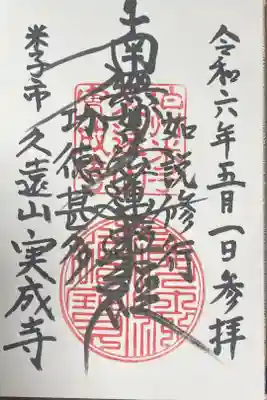 令和六年五月一日参拝
如説修行
南無妙法蓮華経
功徳甚多
米子市 久遠山実成寺